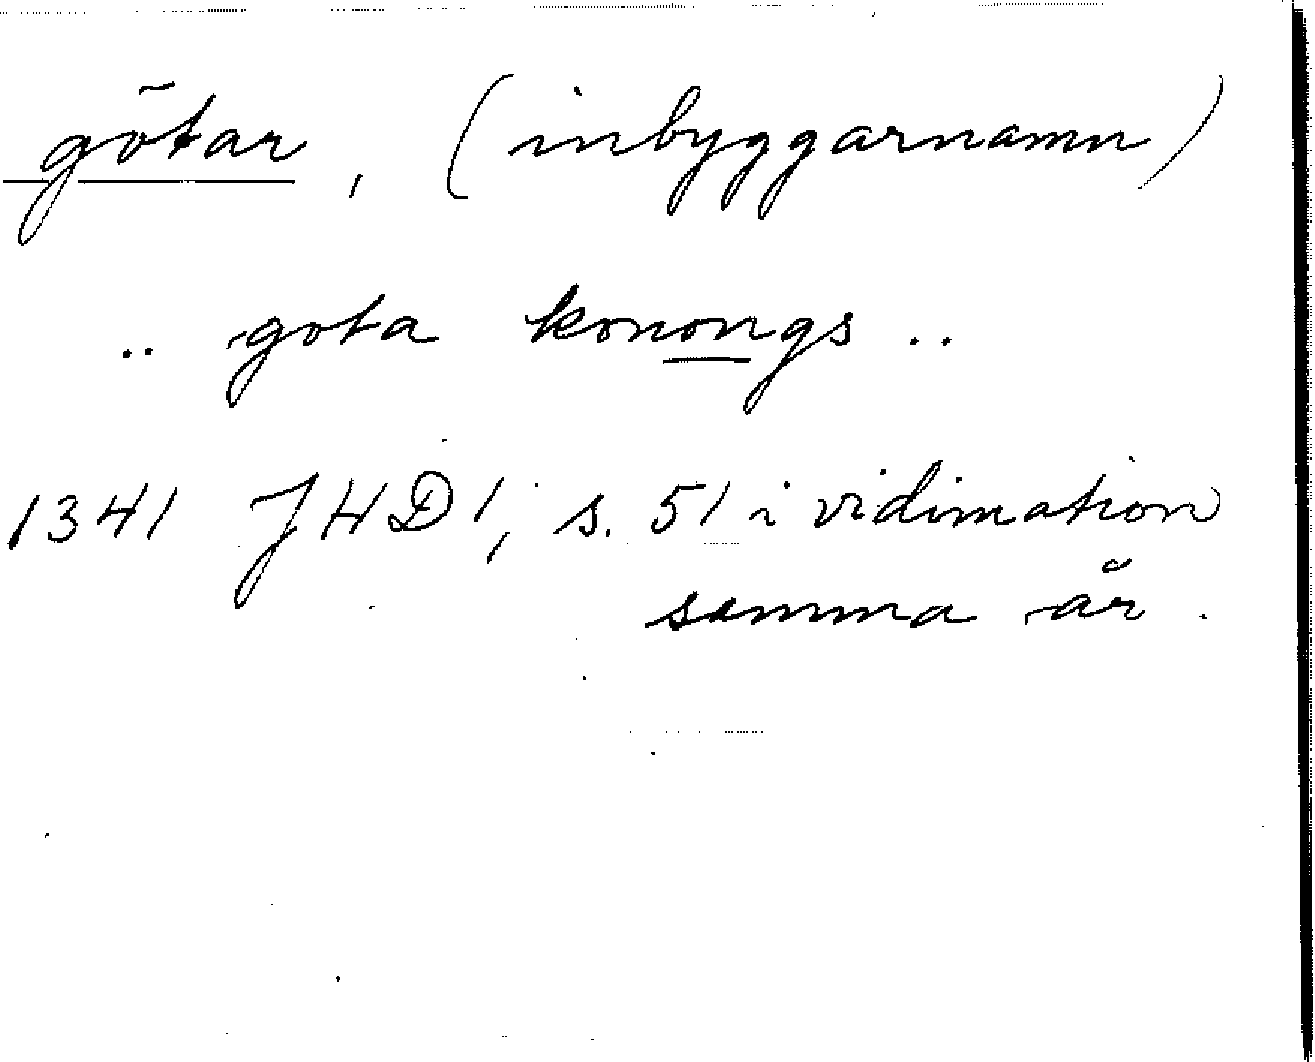 götar, (inbyggarnamn)
.. gota konongs ..
1341 JHD 1, s. 51 i vidimation
samma år.